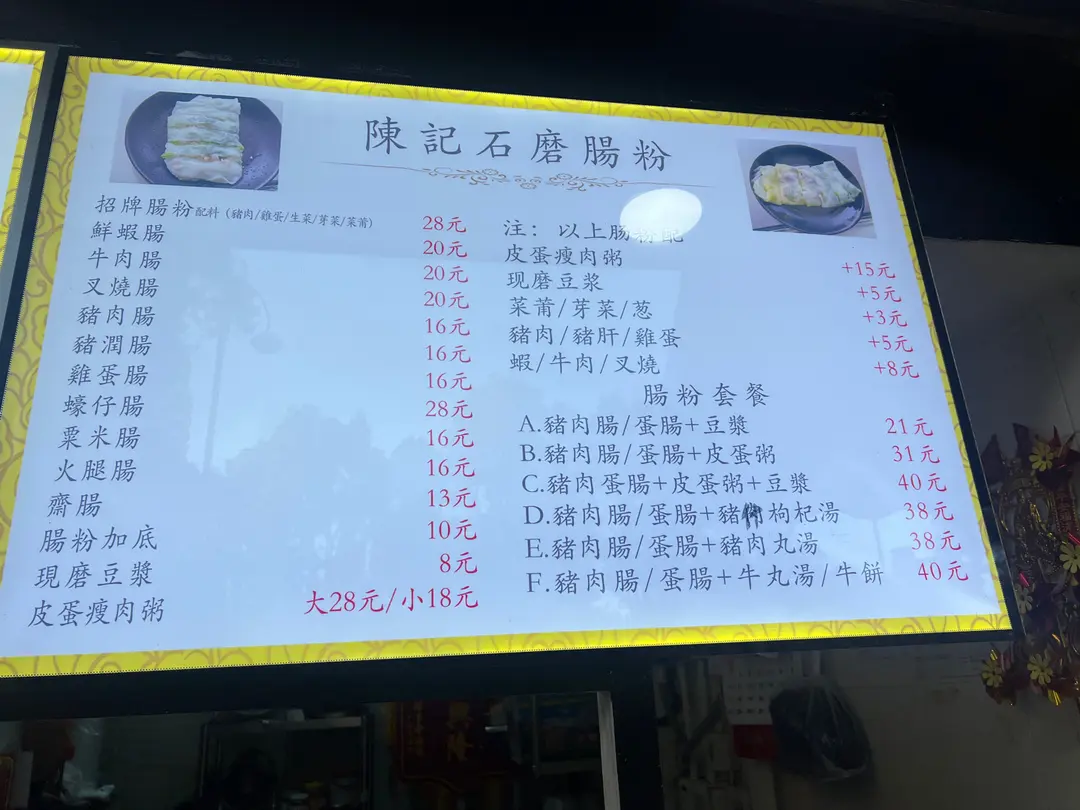 陳記石磨腸粉
招牌腸粉配料(豬肉/雞蛋/生菜/芽菜/菜莆) 28元
鮮蝦腸 20元
牛肉腸 20元
叉燒腸 20元
豬肉腸 16元
豬潤腸 16元
雞蛋腸 16元
蠔仔腸 28元
粟米腸 16元
火腿腸 16元
齋腸 13元
腸粉加底 10元
現磨豆漿 8元
皮蛋瘦肉粥 大28元/小18元
注: 以上肠粉配
皮蛋瘦肉粥 +15元
现磨豆浆 +5元
菜莆/芽菜/葱 +3元
豬肉/豬肝/雞蛋 +5元
蝦/牛肉/叉燒 +8元
腸粉套餐
A.豬肉腸/蛋腸+豆漿 21元
B.豬肉腸/蛋腸+皮蛋粥 31元
C.豬肉蛋腸+皮蛋粥+豆漿 40元
D.豬肉腸/蛋腸+豬枸杞湯 38元
E.豬肉腸/蛋腸+豬肉丸湯 38元
F.豬肉腸/蛋腸+牛丸湯/牛餅 40元